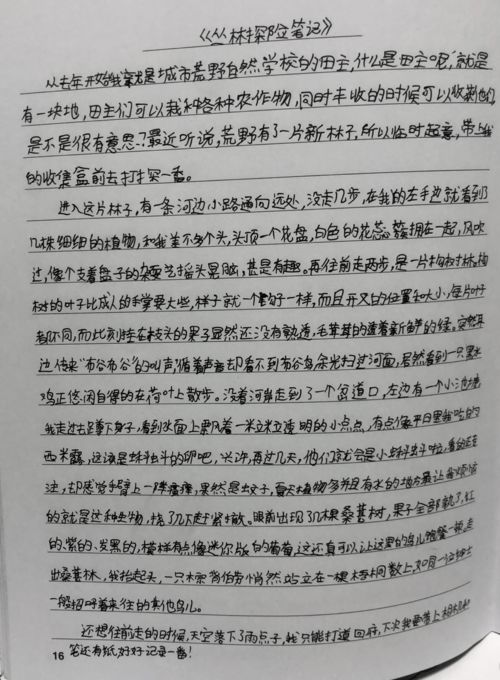 《丛林探险笔记》
从去年开始我家就是城市荒野自然学校的田主,什么是田主呢,就是
有一块地,田主们可以栽种各种农作物,同时丰收的时候可以收割他们
是不是很有意思?最近听说,荒野有了一片新林子,所以临时起意,带上我
的收集盒前去打探一番。
进入这片林子,有一条河边小路通向远处,没走几步,在我的左手边就看到
几株细细的植物,和我差不多个头,头顶一个花盘,白色的花蕊簇拥在一起,风吹
过,像个支着盘子的杂耍艺摇头晃脑,甚是有趣。再往前走两步,是一片构树林,构
树的叶子比成人的手掌要大些,样子就一个 一样,而且开叉的位置和大小,每片叶
都不同,而此刻挂在枝头的果子显然还没有熟透,毛茸茸的透着新鲜的绿。突然耳
边传来"布谷布谷"的叫声,循着声音却看不到布谷鸟,余光扫过河面,居然看到一只黑水
鸡正悠闲自得的在荷叶上散步。沿着河岸走到了一个岔道口,左边有一个小池塘
我走过去蹲下身子,看到水面上飘着一米立米立透明的小点点,有点像平日里我吃的
西米露,这该是蚪蚪的卵吧,兴许,再过几天,他们就会是小蝌蚪啦,看的正专
注,却感觉手臂上一阵瘙痒,果然是蚊子,夏天植物多并且有水的地方最让我烦恼
的就是这种生物,挠了几下赶紧撤。眼前出现了几棵桑葚树,果子全部熟了,红
的,紫的、发黑的,模样有点像迷你版的葡萄,这还真可以让这里的鸟儿饱餐一顿,走
出桑葚林,我抬起头,一只棕背伯劳悄然站立在一棵梧桐数上,如同一位绅士
一般招呼着来往的其他鸟儿。
还想往前走的时候,天空落下了雨点子,我只能打道回府,下次我要带上相机和
16 笔还有纸,好好记录一番!